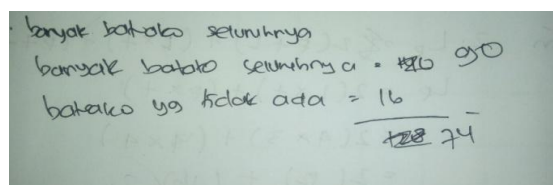 banyak batako seluruhnya
banyak batako seluruhnya = 90
batako yg tidak ada = 16 -
74